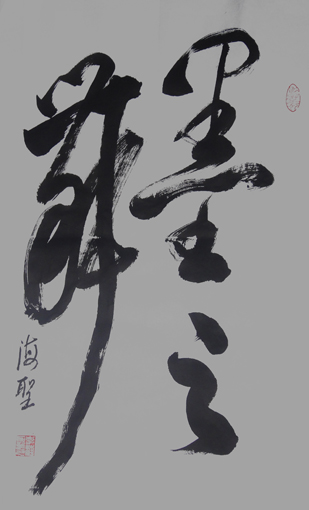 墨之
舞
海聖